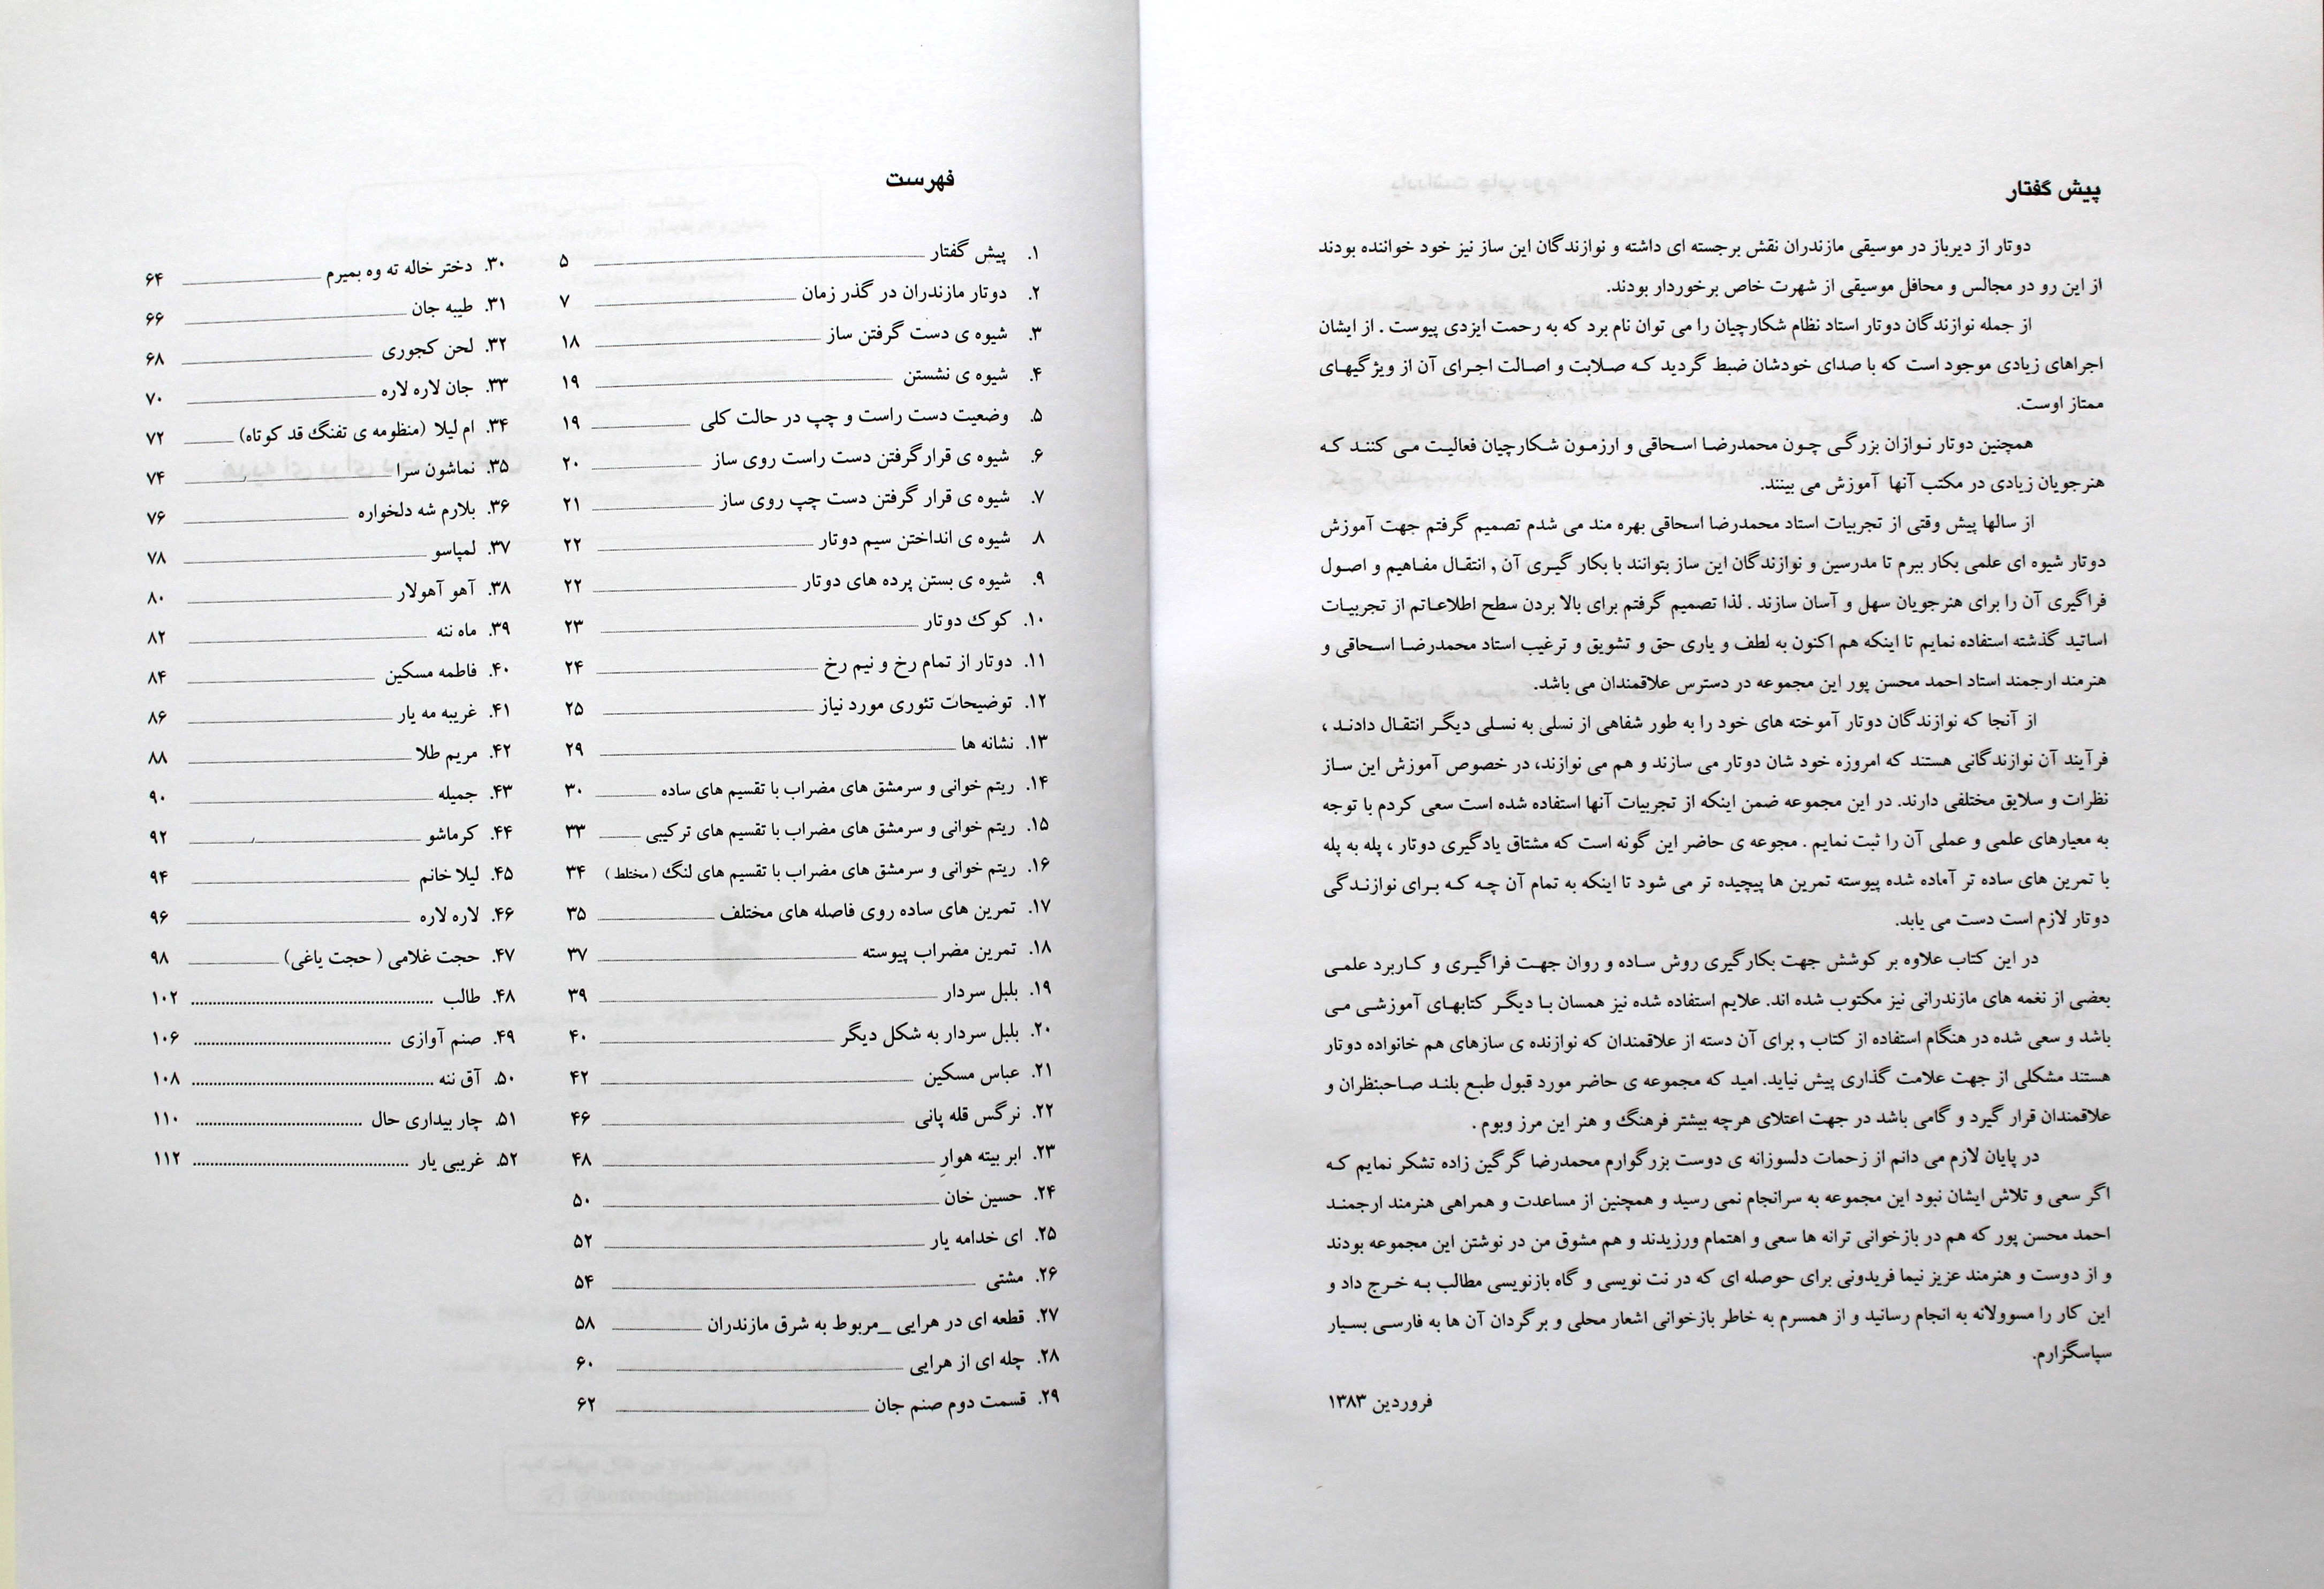 پیش گفتار
دوتار از دیرباز در موسیقی مازندران نقش برجسته ای داشته و نوازندگان این ساز نیز خود خواننده بودند
از این رو در مجالس و محافل موسیقی از شهرت خاص برخوردار بودند.
از جمله نوازندگان دوتار استاد نظام شکارچیان را می توان نام برد که به رحمت ایزدی پیوست . از ایشان
اجراهای زیادی موجود است که با صدای خودشان ضبط گردید که صلابت و اصالت اجرای آن از ویژگیهای
ممتاز اوست.
همچنین دوتار نوازان بزرگی چون محمدرضا اسحاقی و ارزمون شکارچیان فعالیت می کنند که
هنرجویان زیادی در مکتب آنها آموزش می بینند.
از سالها پیش وقتی از تجربیات استاد محمدرضا اسحاقی بهره مند می شدم تصمیم گرفتم جهت آموزش
دوتار شیوه ای علمی بکار ببرم تا مدرسین و نوازندگان این ساز بتوانند با بکار گیری آن , انتقال مفاهیم و اصول
فراگیری آن را برای هنرجویان سهل و آسان سازند . لذا تصمیم گرفتم برای بالا بردن سطح اطلاعاتم از تجربیات
اساتید گذشته استفاده نمایم تا اینکه هم اکنون به لطف و یاری حق و تشویق و ترغیب استاد محمدرضا اسحاقی و
هنرمند ارجمند استاد احمد محسن پور این مجموعه در دسترس علاقمندان می باشد.
از آنجا که نوازندگان دوتار آموخته های خود را به طور شفاهی از نسلی به نسلی دیگر انتقال دادند ،
فرآیند آن نوازندگانی هستند که امروزه خود شان دوتار می سازند و هم می نوازند، در خصوص آموزش این ساز
نظرات و سلایق مختلفی دارند. در این مجموعه ضمن اینکه از تجربیات آنها استفاده شده است سعی کردم با توجه
به معیارهای علمی و عملی آن را ثبت نمایم . مجوعه ی حاضر این گونه است که مشتاق یادگیری دوتار ، پله به پله
با تمرین های ساده تر آماده شده پیوسته تمرین ها پیچیده تر می شود تا اینکه به تمام آن چه که برای نوازندگی
دوتار لازم است دست می یابد.
در این کتاب علاوه بر کوشش جهت بکارگیری روش ساده و روان جهت فراگیری و کاربرد علمی
بعضی از نغمه های مازندرانی نیز مکتوب شده اند. علایم استفاده شده نیز همسان با دیگر کتابهای آموزشی می
باشد و سعی شده در هنگام استفاده از کتاب , برای آن دسته از علاقمندان که نوازنده ی سازهای هم خانواده دوتار
هستند مشکلی از جهت علامت گذاری پیش نیاید. امید که مجموعه ی حاضر مورد قبول طبع بلند صاحبنظران و
علاقمندان قرار گیرد و گامی باشد در جهت اعتلای هرچه بیشتر فرهنگ و هنر این مرز وبوم .
در پایان لازم می دانم از زحمات دلسوزانه ی دوست بزرگوارم محمدرضا گرگین زاده تشکر نمایم که
اگر سعی و تلاش ایشان نبود این مجموعه به سرانجام نمی رسید و همچنین از مساعدت و همراهی هنرمند ارجمند
احمد محسن پور که هم در بازخوانی ترانه ها سعی و اهتمام ورزیدند و هم مشوق من در نوشتن این مجموعه بودند
و از دوست و هنرمند عزیز نیما فریدونی برای حوصله ای که در نت نویسی و گاه بازنویسی مطالب به خرج داد و
این کار را مسوولانه به انجام رسانید و از همسرم به خاطر بازخوانی اشعار محلی و برگردان آن ها به فارسی بسیار
سپاسگزارم.
فروردین ۱۳۸۳
فهرست
۱. پیش گفتار ۵
۲. دوتار مازندران در گذر زمان ۷
۳. شیوه ی دست گرفتن ساز ۱۸
۴. شیوه ی نشستن ۱۹
۵. وضعیت دست راست و چپ در حالت کلی ۱۹
۶. شیوه ی قرارگرفتن دست راست روی ساز ۲۰
۷. شیوه ی قرار گرفتن دست چپ روی ساز ۲۱
۸. شیوه ی انداختن سیم دوتار ۲۲
۹. شیوه ی بستن پرده های دوتار ۲۲
۱۰. کوک دوتار ۲۳
۱۱. دوتار از تمام رخ و نیم رخ ۲۴
۱۲. توضیحات تئوری مورد نیاز ۲۵
۱۳. نشانه ها ۲۹
۱۴. ریتم خوانی و سرمشق های مضراب با تقسیم های ساده ۳۰
۱۵. ریتم خوانی و سرمشق های مضراب با تقسیم های ترکیبی ۳۳
۱۶. ریتم خوانی و سرمشق های مضراب با تقسیم های لنگ ( مختلط ) ۳۴
۱۷. تمرین های ساده روی فاصله های مختلف ۳۵
۱۸. تمرین مضراب پیوسته ۳۷
۱۹. بلبل سردار ۳۹
۲۰. بلبل سردار به شکل دیگر ۴۰
۲۱. عباس مسکین ۴۲
۲۲. نرگس قله پانی ۴۶
۲۳. ابر بیته هوار ۴۸
۲۴. حسین خان ۵۰
۲۵. ای خدامه یار ۵۲
۲۶. مشتی ۵۴
۲۷. قطعه ای در هرایی _مربوط به شرق مازندران ۵۸
۲۸. چله ای از هرایی ۶۰
۲۹. قسمت دوم صنم جان ۶۲
۳۰. دختر خاله ته وه بمیرم ۶۴
۳۱. طیبه جان ۶۶
۳۲. لحن کجوری ۶۸
۳۳. جان لاره لاره ۷۰
۳۴. ام لیلا (منظومه ی تفنگ قد کوتاه) ۷۲
۳۵. نماشون سرا ۷۴
۳۶. بلارم شه دلخواره ۷۶
۳۷. لمپاسو ۷۸
۳۸. آهو آهولار ۸۰
۳۹. ماه ننه ۸۲
۴۰. فاطمه مسکین ۸۴
۴۱. غریبه مه یار ۸۶
۴۲. مریم طلا ۸۸
۴۳. جمیله ۹۰
۴۴. کرماشو ۹۲
۴۵. لیلا خانم ۹۴
۴۶. لاره لاره ۹۶
۴۷. حجت غلامی ( حجت یاغی) ۹۸
۴۸. طالب ۱۰۲
۴۹. صنم آوازی ۱۰۶
۵۰. آق ننه ۱۰۸
۵۱. چار بیداری حال ۱۱۰
۵۲. غریبی یار ۱۱۲